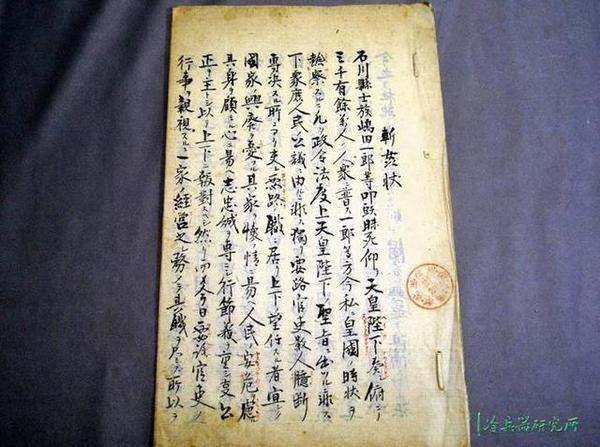 斬奸状
石川縣士族嶋田一郎等叩頭昧死仰テ天皇陛下ニ奏シ俯シテ
三千有餘萬ノ人衆ニ普告ス一郎等方今我皇國ノ時状ヲ
熟察スルニ凡ソ政令法度上天皇陛下ノ聖旨ニ出ルニ非ス
下衆庶人民ノ公議ニ由ルニ非ス獨リ要路官吏数人ノ臆断
専决スル所ニアリ夫レ要路ノ職ニ居リ上下ノ望ニ任スル者宜シク
國家ノ興廃ヲ憂フル其家ヲ懐フノ情ニ易ヘ人民ノ安危ヲ慮ル
其身ヲ顧ルノ心ニ易ヘ志忠誠ヲ専ニシ行節義ヲ重シ事公
正ヲ主トシ以テ上下ニ報對スヘシ然リ而シテ今日要路官吏ノ
行事ヲ親視スルニ一家ノ経営之務メテ其職ヲ尽ス所以ヲ
冷兵器研究所